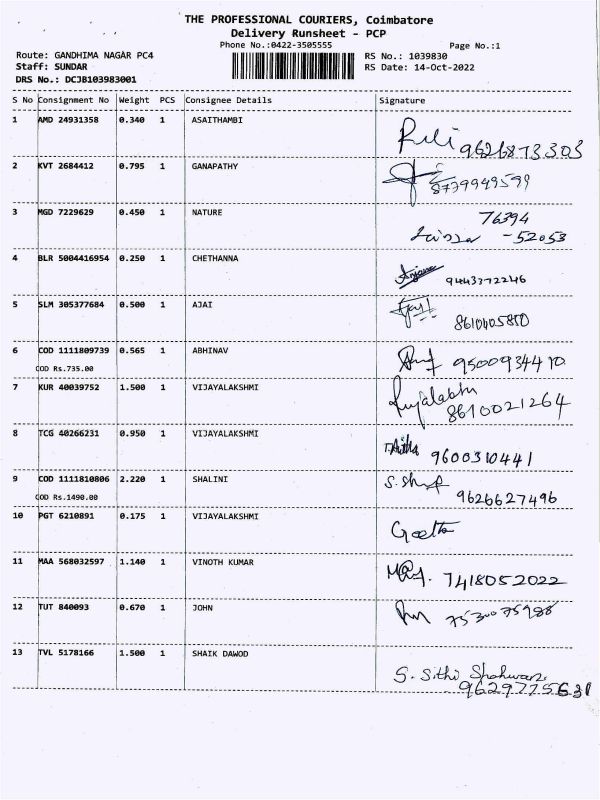 THE PROFESSIONAL COURIERS, Coimbatore
Delivery Runsheet - PCP
Phone No.:0422-3505555 Page No.:1
Route: GANDHIMA NAGAR PC4 RS No.: 1039830
Staff: SUNDAR RS Date: 14-Oct-2022
DRS No.: DCJB103983001
S No Consignment No Weight PCS Consignee Details Signature
1 AMD 24931358 0.340 1 ASAITHAMBI
9626873303
2 KVT 2684412 0.795 1 GANAPATHY
8779949599
3 MGD 7229629 0.450 1 NATURE 76394
-52053
4 BLR 5004416954 0.250 1 CHETHANNA
9443372246
5 SLM 305377684 0.500 1 AJAI
8610405850
6 COD 1111809739 0.565 1 ABHINAV 9500934410
COD Rs.735.00
7 KUR 40039752 1.500 1 VIJAYALAKSHMI
8610021264
8 TCG 40266231 0.950 1 VIJAYALAKSHMI
9600310441
9 COD 1111810806 2.220 1 SHALINI
COD Rs.1490.00 9626627496
10 PGT 6210891 0.175 1 VIJAYALAKSHMI
Geetha
11 MAA 568032597 1.140 1 VINOTH KUMAR
7418052022
12 TUT 840093 0.670 1 JOHN
7530075988
13 TVL 5178166 1.500 1 SHAIK DAWOD
S. Sithi Shahwan
9629775631